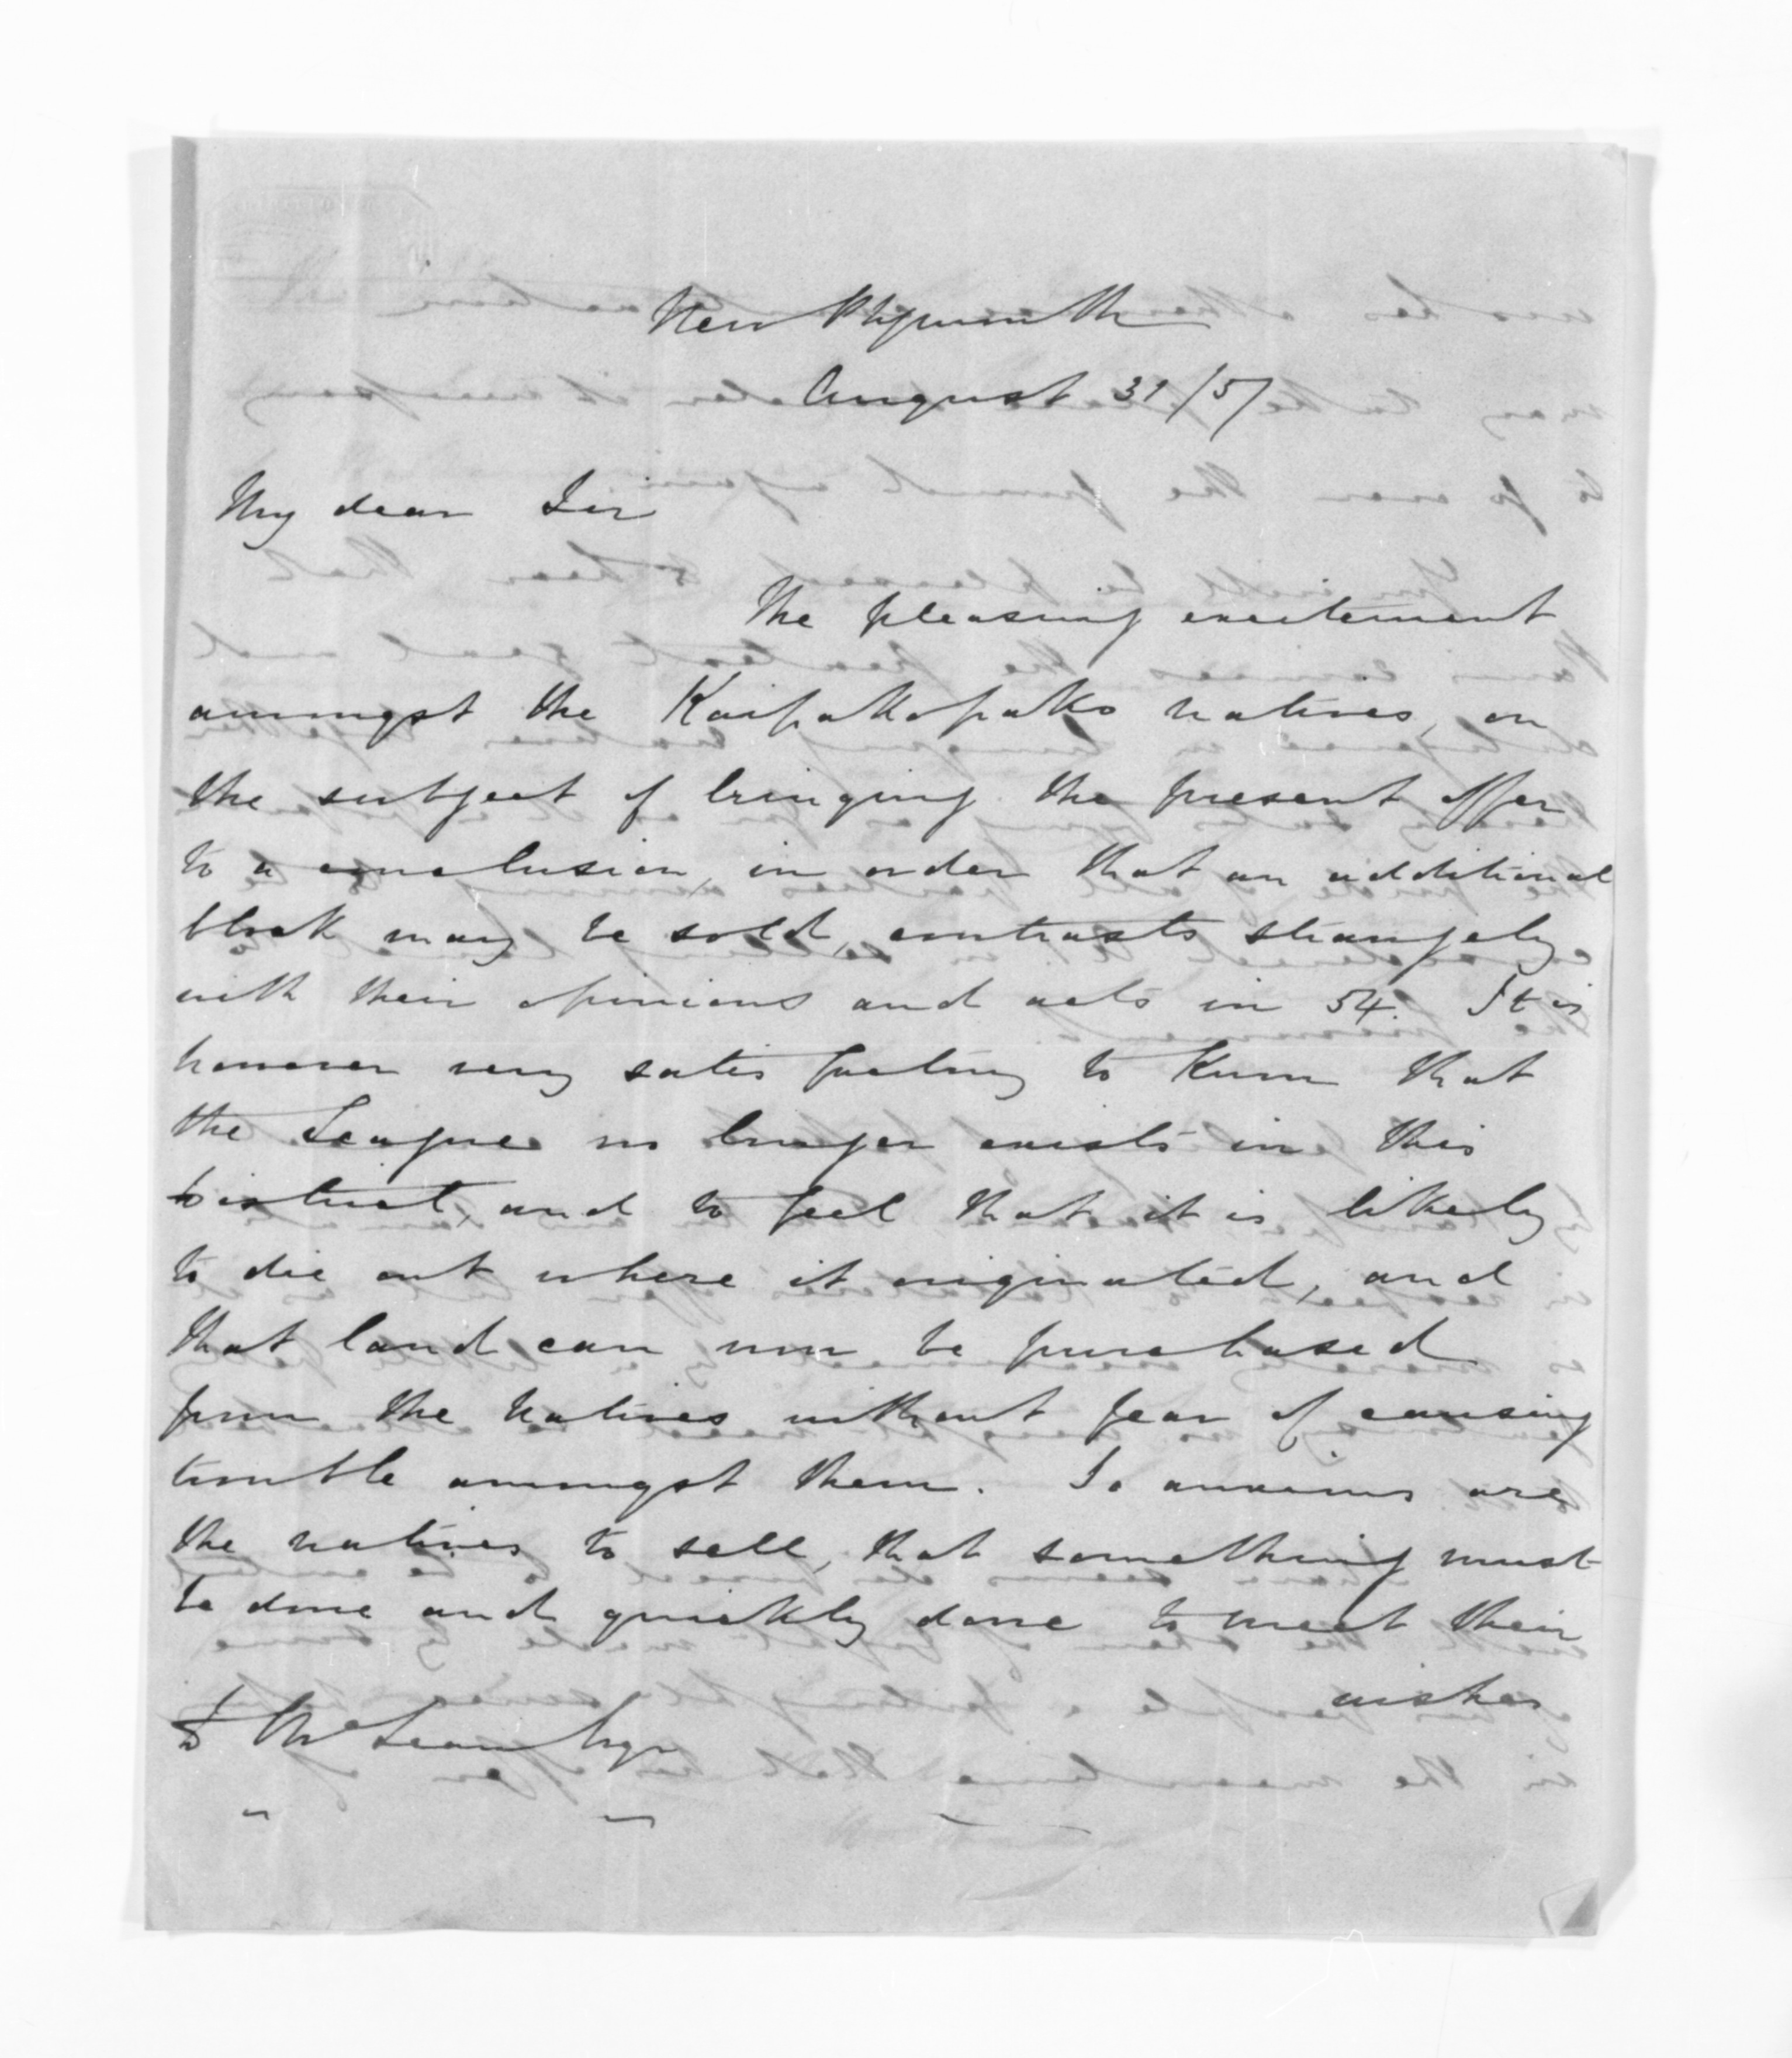 New Plymouth
August 31/57
My dear Sir
The pleasing excitement
amongst the Kaipakopako natives, on
the subject of bringing the present offer
to a conclusion, in order that an additional
block may be sold, contrasts strangely
with their opinions and acts in 54. It is
however very satisfactory to know that
the League no longer exists in this
District, and to feel that it is likely
to die out where it originated, and
that land can now be purchased
from the Natives without fear of causing
trouble amongst them. So anxious are
the natives to sell, that something must
be done and quickly done to meet their
wishes
D McLean Esqr